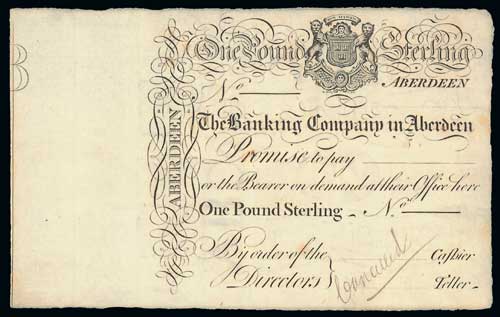 One Pound Sterling
ABERDEEN
No
The Banking Company in Aberdeen
Promise to pay
or the Bearer on demand at their Office here
One Pound Sterling - No
By order of the Cashier
Directors Teller
Cancelled
ABERDEEN